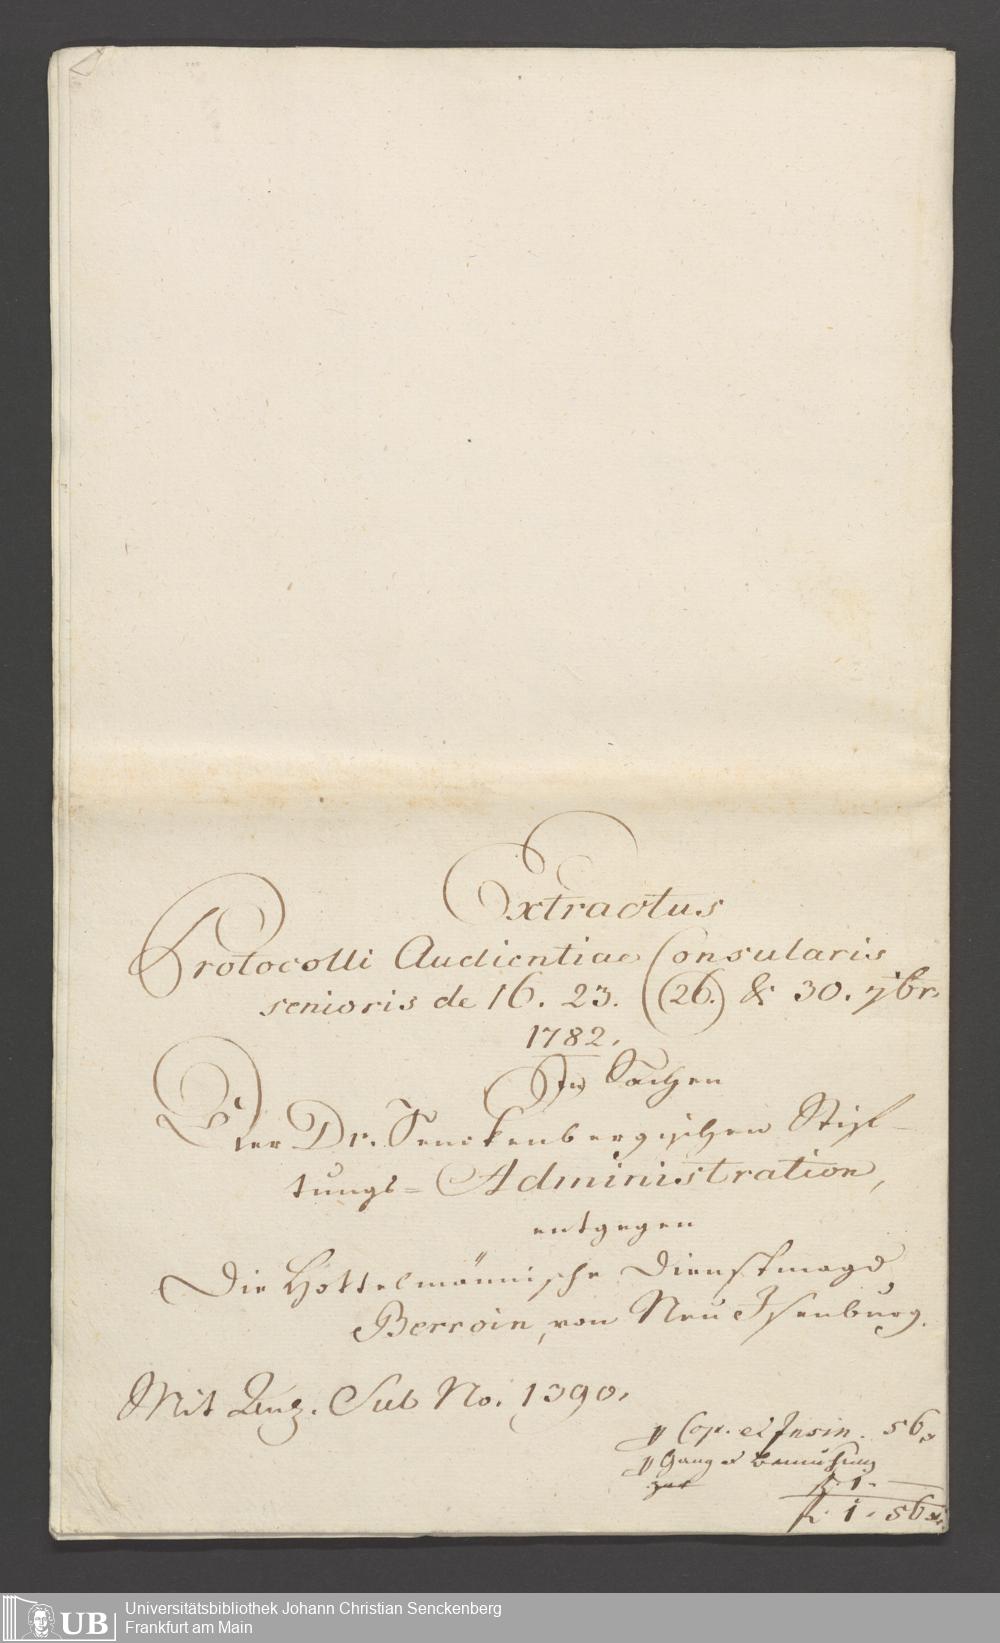 Extractus
Protocolli Audientiae Consularis
senioris de 16. 23. (26.) & 30. 7br
1782.
In Sachen
Der Dr. Senckenbergischen Stif-
tungs= Administration,
entgegen
Die Hottelmännische Dienstmagd,
Berroin, von Neu Isenburg.
Mit Anz. Sub No. 1390.
p Cop. et Insin. 56 x
p Gang u Bemühung
f. 1. —
f. 1. 56 x
UB
Universitätsbibliothek Johann Christian Senckenberg
Frankfurt am Main